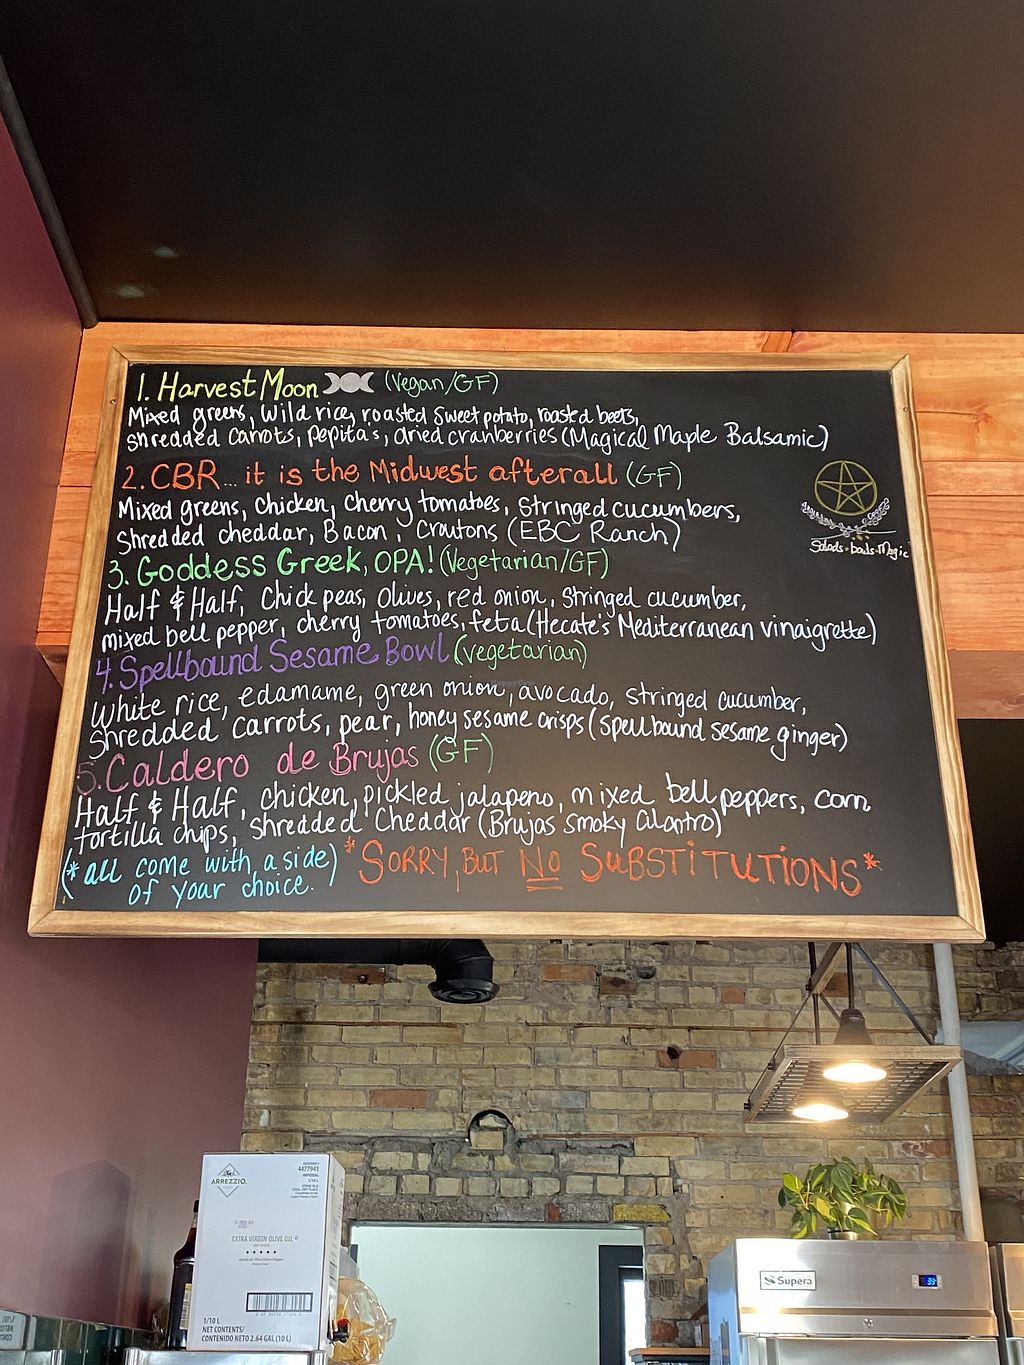 1. Harvest Moon (Vegan/GF)
Mixed greens, Wild rice, roasted sweet potato, roasted beets,
shredded carrots, pepita's, dried cranberries (Magical Maple Balsamic)
2. CBR... it is the Midwest afterall (GF)
Mixed greens, Chicken, Cherry tomatoes, Stringed cucumbers,
Shredded cheddar, Bacon, Croutons (EBC Ranch)
3. Goddess Greek, OPA! (Vegetarian/GF)
Half & Half, Chick peas, Olives, red onion, Stringed cucumber,
mixed bell pepper, cherry tomatoes, feta (Hecate's Mediterranean vinaigrette)
4. Spellbound Sesame Bowl (vegetarian)
White rice, edamame, green onion, avocado, stringed cucumber,
Shredded carrots, pear, honey sesame crisps (Spellbound sesame ginger)
5. Caldero de Brujas (GF)
Half & Half, chicken, pickled jalapeno, mixed bell peppers, corn
tortilla chips, shredded Cheddar (Brujas smoky cilantro)
(*all come with a side) *SORRY, BUT NO SUBSTITUTIONS*
of your choice.
Salads · bowls · Magic
ARREZZIO.
4477941
EXTRA VIRGIN OLIVE OIL
1/10 L
NET CONTENTS/
CONTENIDO NETO 2.64 GAL (10 L)
Supera